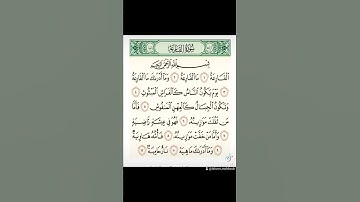 سُورَةُ القَارِعَةِ
بِسْمِ اللَّهِ الرَّحْمَٰنِ الرَّحِيمِ
الْقَارِعَةُ ١ مَا الْقَارِعَةُ ٢ وَمَا أَدْرَاكَ مَا الْقَارِعَةُ
٣ يَوْمَ يَكُونُ النَّاسُ كَالْفَرَاشِ الْمَبْثُوثِ ٤
وَتَكُونُ الْجِبَالُ كَالْعِهْنِ الْمَنْفُوشِ ٥ فَأَمَّا
مَنْ ثَقُلَتْ مَوَازِينُهُ ٦ فَهُوَ فِي عِيشَةٍ رَاضِيَةٍ
٧ وَأَمَّا مَنْ خَفَّتْ مَوَازِينُهُ ٨ فَأُمُّهُ هَاوِيَةٌ
٩ وَمَا أَدْرَاكَ مَا هِيَهْ ١٠ نَارٌ حَامِيَةٌ ١١